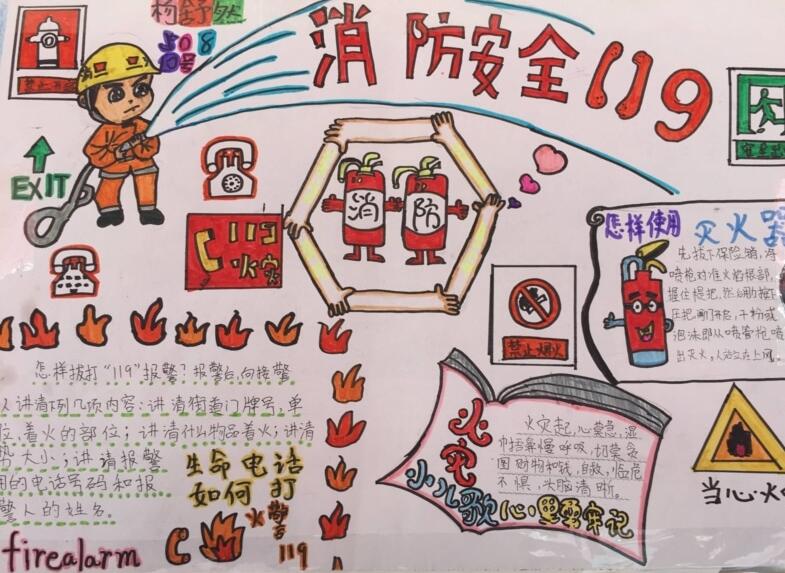 杨舒然
50 8
号
消防安全119
禁止
EXIT
119
火灾
消 防
怎样使用灭火器
先拔下保险销,将
喷枪对准火焰根部,
握住提把,然后用力按下
压把,阀门开启,干粉或
泡沫即从喷管枪喷
出灭火,人站立在上风
禁止烟火
怎样拔打“119”报警?报警后,向接警
人讲清下列几项内容:讲清街道门牌号,单
位,着火的部位;讲清什么物品着火;讲清
势大小;讲清报警
用的电话号码和报
警人的姓名.
生命电话
如何打
火警
119
firealarm
火灾
小儿歌
火灾起,心莫急,湿
巾捂鼻慢呼吸,切莫贪
图财物和钱,自救,临危
不惧,头脑清晰。
心里要牢记
当心火